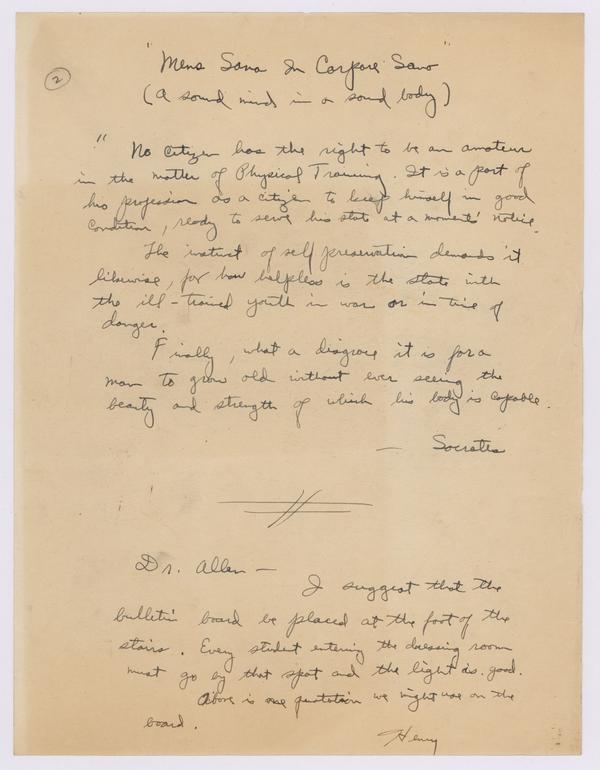 2
"Mens Sana In Corpore Sano"
(A sound mind in a sound body)
" No citizen has the right to be an amateur
in the matter of Physical Training. It is a part of
his profession as a citizen to keep himself in good
condition, ready to serve his state at a moments' notice.
The instinct of self preservation demands it
likewise, for how helpless is the state with
the ill-trained youth in war or in time of
danger.
Finally, what a disgrace it is for a
man to grow old without ever seeing the
beauty and strength of which his body is capable.
— Socrates
Dr. Allen —
I suggest that the
bulletin board be placed at the foot of the
stairs. Every student entering the dressing room
must go by that spot and the light is good.
Above is one quotation we might use on the
board.
Henry